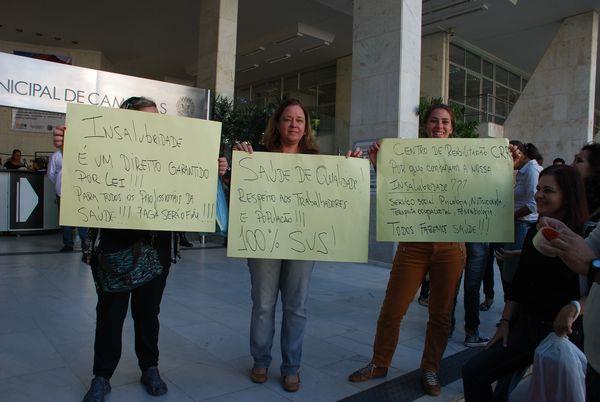 NICIPAL DE CAM
INSALUBRIDADE
É UM DIREITO GARANTIDO
POR LEI!!!
PARA TODOS OS PROFISSIONAIS DA
SAÚDE!!! PAGA SERÁFIM!!!
SAÚDE DE QUALIDADE!
RESPEITO AOS TRABALHADORES
E POPULAÇÃO!!!
100% SUS!
CENTRO DE REABILITAÇÃO CR
POR QUE CORTARAM A NOSSA
INSALUBRIDADE???
SERVIÇO SOCIAL, PSICOLOGIA, NUTRICIONISTA
TERAPIA OCUPACIONAL, FONOAUDIOLOGIA
TODOS FAZEMOS SAÚDE!!!